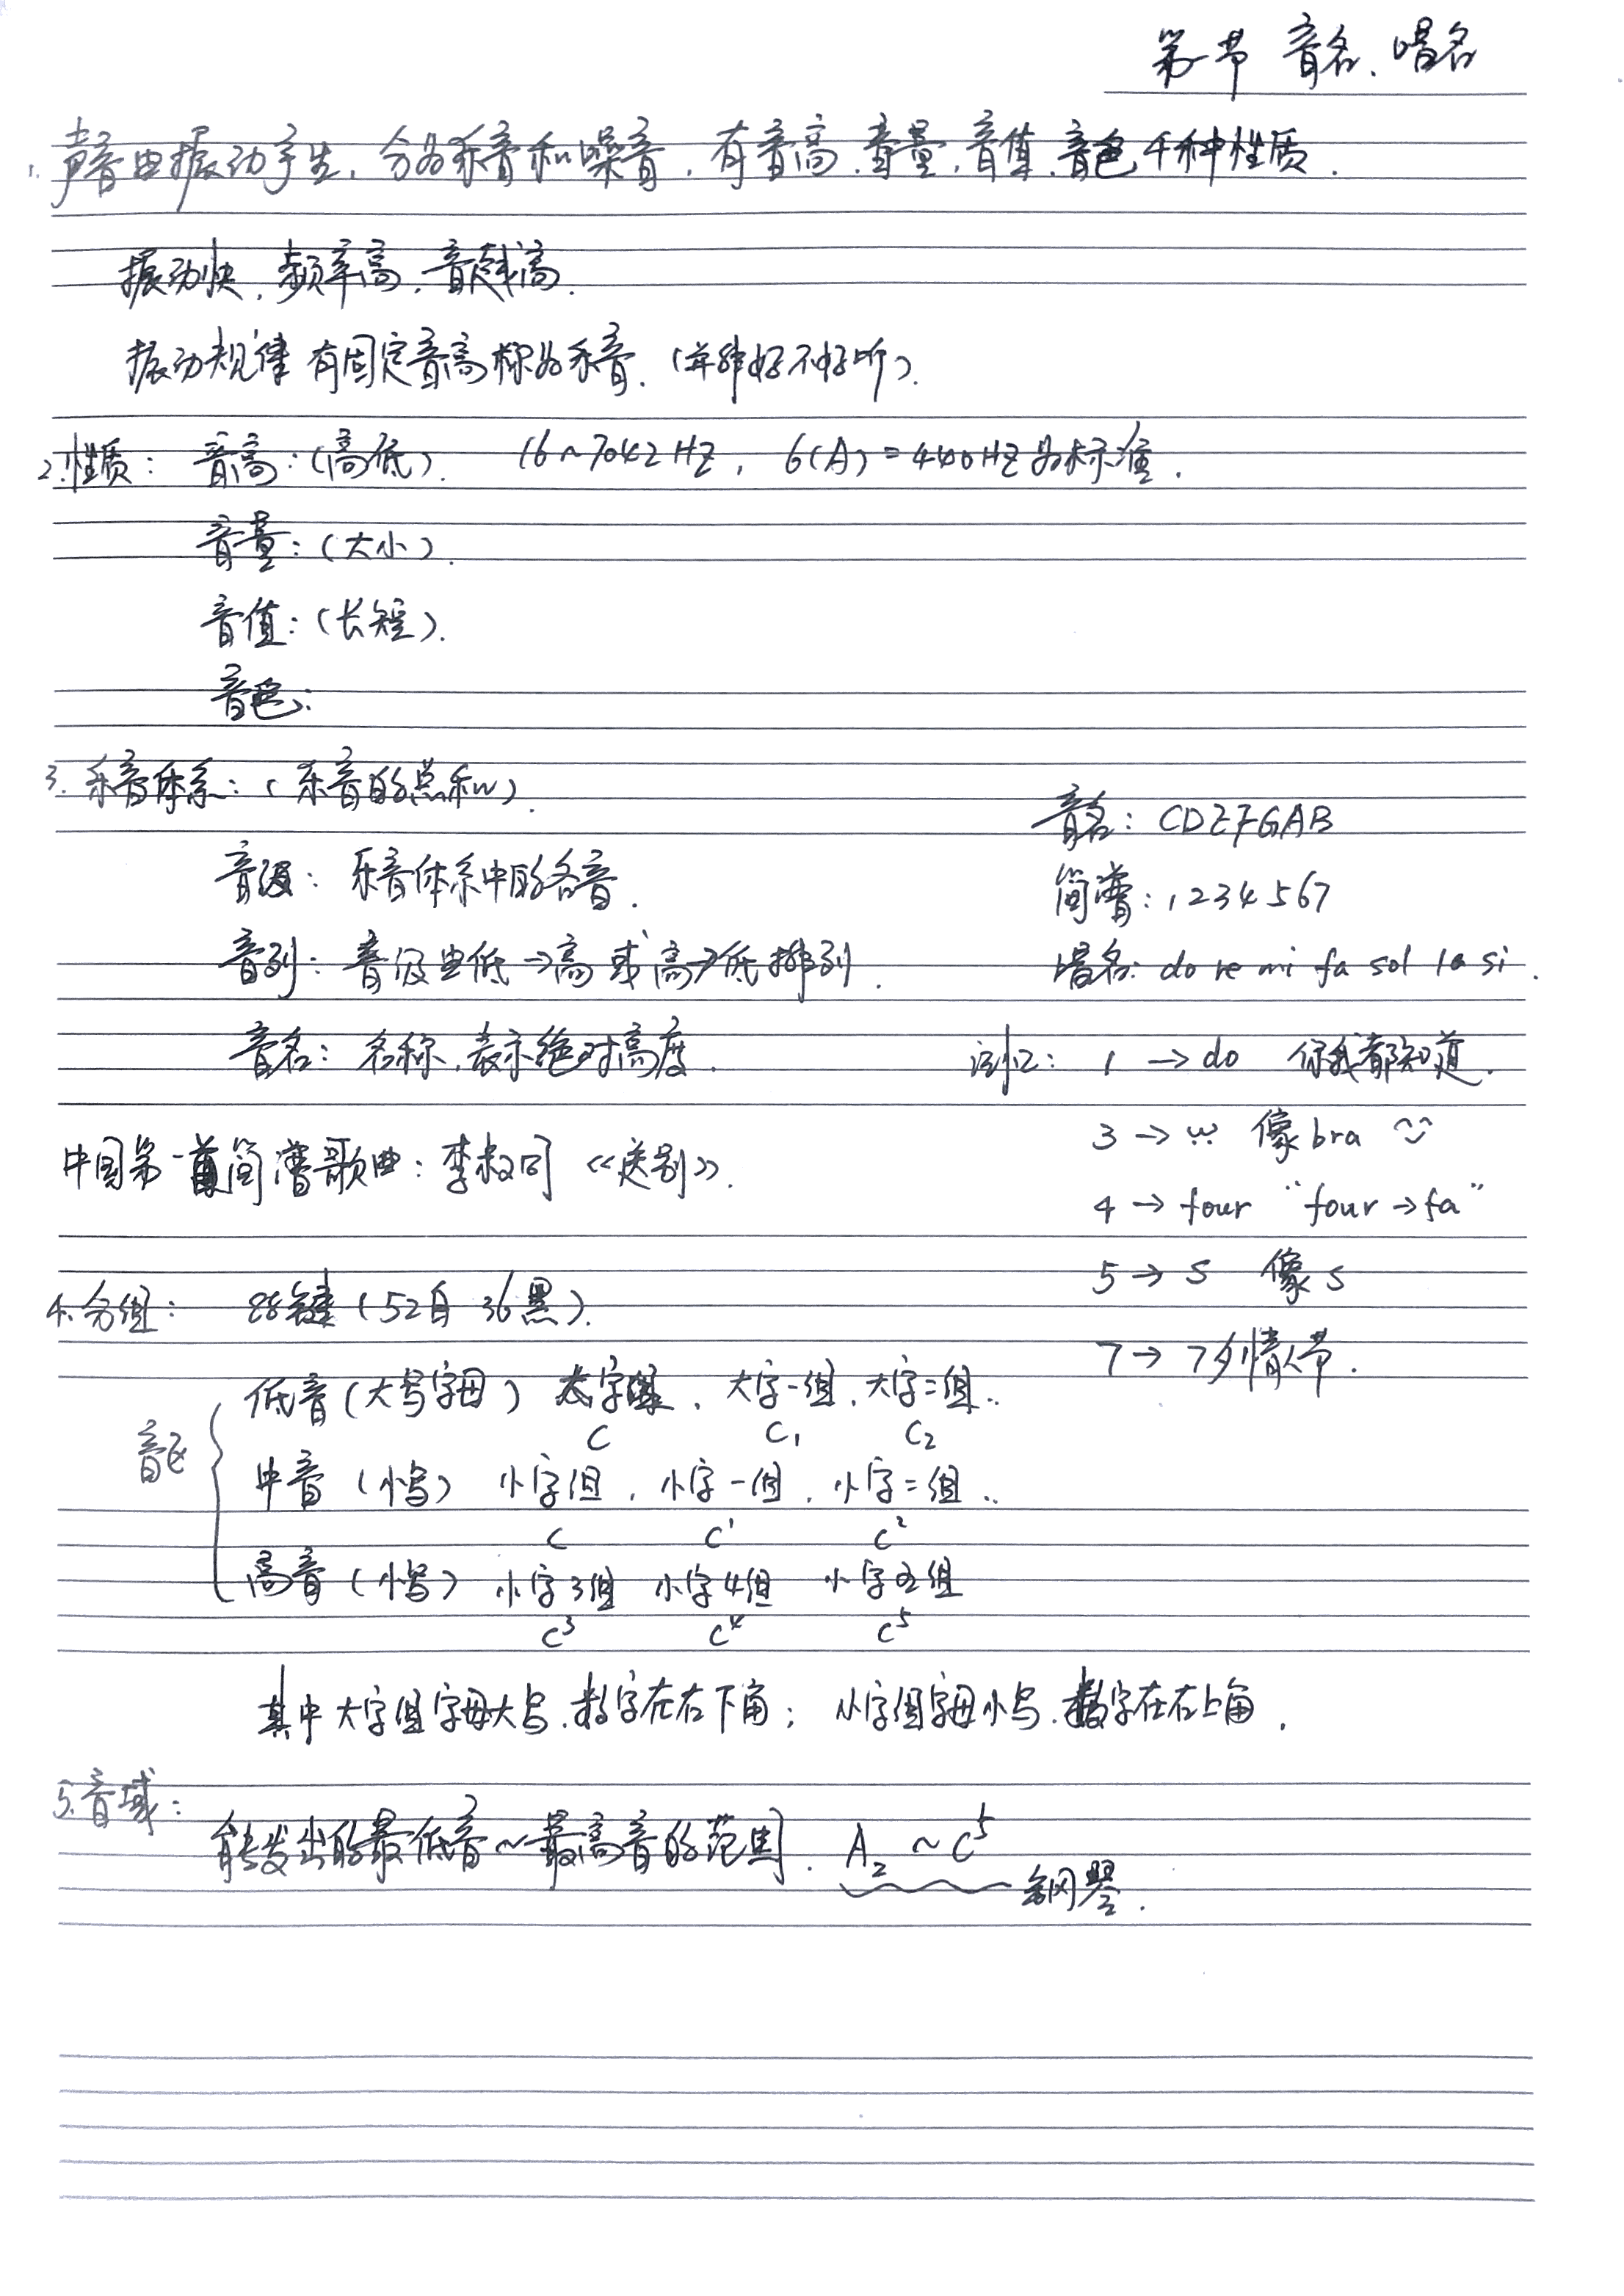 第一节 音名、唱名
1. 声音由振动产生，分为乐音和噪音，有音高、音量、音值、音色4种性质．
振动快，频率高，音越高．
振动规律 有固定音高称为乐音．(并非好不好听)．
2. 性质： 音高：(高低)． 16~7042HZ， 6(A)=440HZ为标准．
音量：(大小)．
音值：(长短)．
音色：
3. 乐音体系：(乐音的总和)．
音级： 乐音体系中的各音．
音列： 音级由低→高 或 高→低 排列．
音名： 名称，表示绝对高度．
中国第一首简谱歌曲：李叔同《送别》．
音名： CDEFGAB
简谱：1234567
唱名：do re mi fa sol la si．
记忆： 1 → do 你我都知道．
3 → 像bra
4 → four “four→fa”
5 → S 像S
7 → 7夕情人节．
4. 分组： 88键(52白 36黑)．
音区
低音(大写字母) 大字组，大字一组，大字二组..
C C₁ C₂
中音 (小写) 小字组，小字一组，小字二组..
c c¹ c²
高音 (小写) 小字3组 小字4组 小字5组
c³ c⁴ c⁵
其中大字组字母大写，数字在右下角； 小字组字母小写，数字在右上角．
5. 音域：
能发出的最低音~最高音的范围． A₂ ~ C⁵
钢琴．